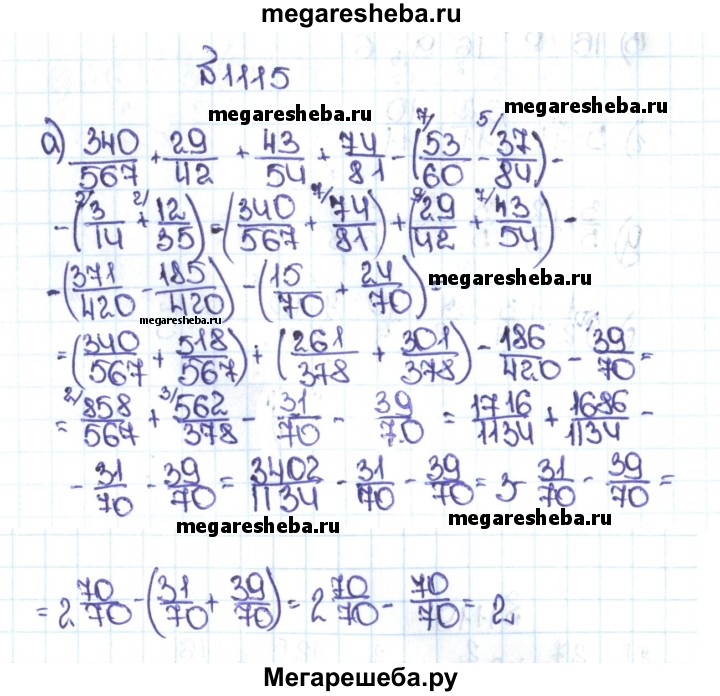 megaresheba.ru
№1115
megaresheba.ru
megaresheba.ru
а) 340/567 + 29/42 + 43/54 + 74/81 - (7/ 53/60 - 5/ 37/84) -
- (3/14 + 2/ 12/35) = (340/567 + 7/ 74/81) + (9/ 29/42 + 7/ 43/54) -
- (371/420 - 185/420) - (15/70 + 24/70) =
megaresheba.ru
megaresheba.ru
= (340/567 + 518/567) + (261/378 + 301/378) - 186/420 - 39/70 =
= 2/ 858/567 + 3/ 562/378 - 31/70 - 39/70 = 1716/1134 + 1686/1134 -
- 31/70 - 39/70 = 3402/1134 - 31/70 - 39/70 = 3 - 31/70 - 39/70 =
megaresheba.ru
megaresheba.ru
= 2 70/70 - (31/70 + 39/70) = 2 70/70 - 70/70 = 2
Мегарешеба.ру